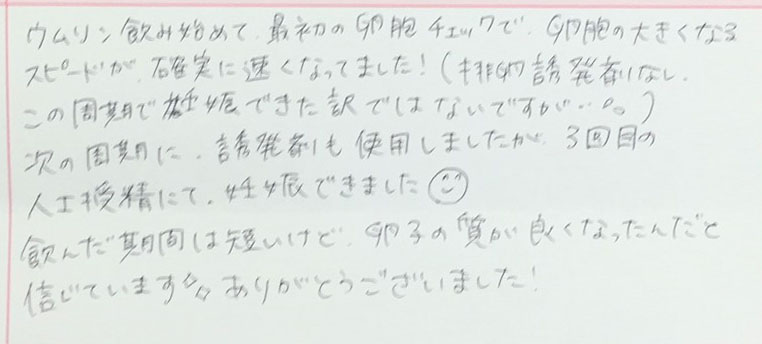 ウムリン飲み始めて、最初の卵胞チェックで、卵胞の大きくなる
スピードが、確実に速くなってました!(排卵誘発剤なし。
この周期で妊娠できた訳ではないですが…。)
次の周期に、誘発剤も使用しましたが、3回目の
人工授精にて、妊娠できました☺
飲んだ期間は短いけど、卵子の質が良くなったんだと
信じています✨ありがとうございました!